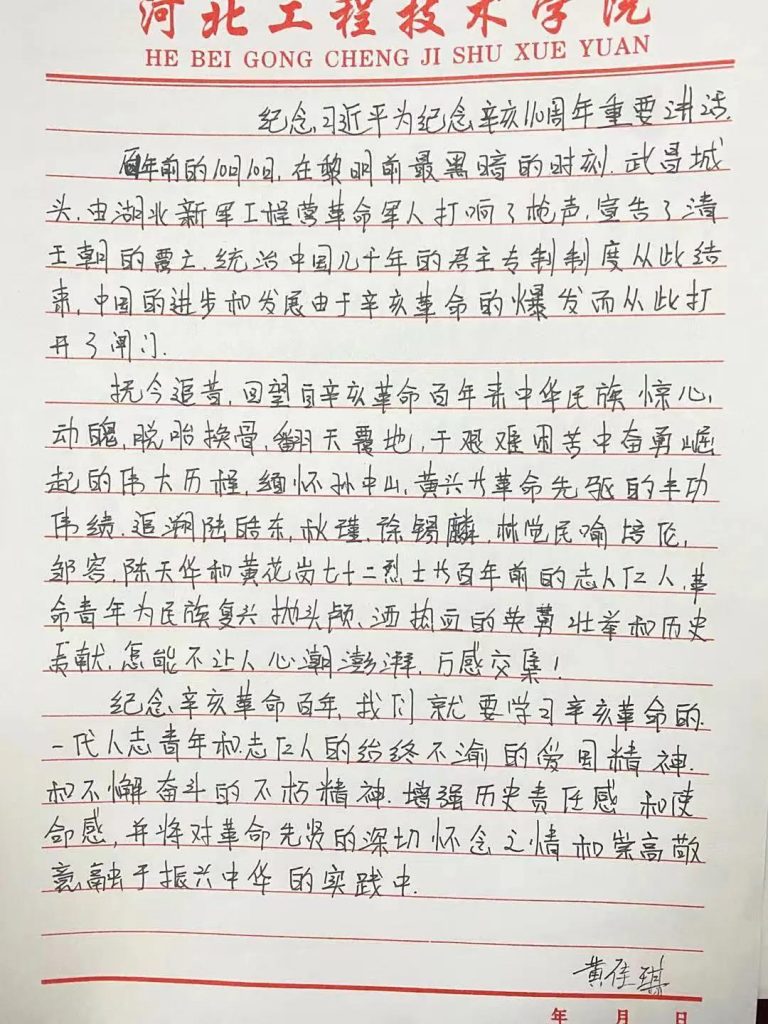 河北工程技术学院
HE BEI GONG CHENG JI SHU XUE YUAN
纪念习近平为纪念辛亥110周年重要讲话.
百年前的10月10日,在黎明前最黑暗的时刻.武昌城
头,由湖北新军工程营革命军人打响了枪声,宣告了清
王朝的覆亡.统治中国几千年的君主专制制度从此结
束,中国的进步和发展由于辛亥革命的爆发而从此打
开了闸门.
抚今追昔,回望自辛亥革命百年来中华民族惊心
动魄,脱胎换骨,翻天覆地,于艰难困苦中奋勇崛
起的伟大历程,缅怀孙中山,黄兴等革命先驱的丰功
伟绩.追溯陆皓东,秋瑾,徐锡麟,林觉民喻培伦,
邹容,陈天华和黄花岗七十二烈士等百年前的志人仁人,革
命青年为民族复兴抛头颅、洒热血的英勇壮举和历史
贡献,怎能不让人心潮澎湃,万感交集!
纪念辛亥革命百年,我们就要学习辛亥革命的
一代人志青年和志仁人的始终不渝的爱国精神.
和不懈奋斗的不朽精神.增强历史责任感和使
命感,并将对革命先贤的深切怀念之情和崇高敬
意融于振兴中华的实践中.
黄佳琪
年 月 日